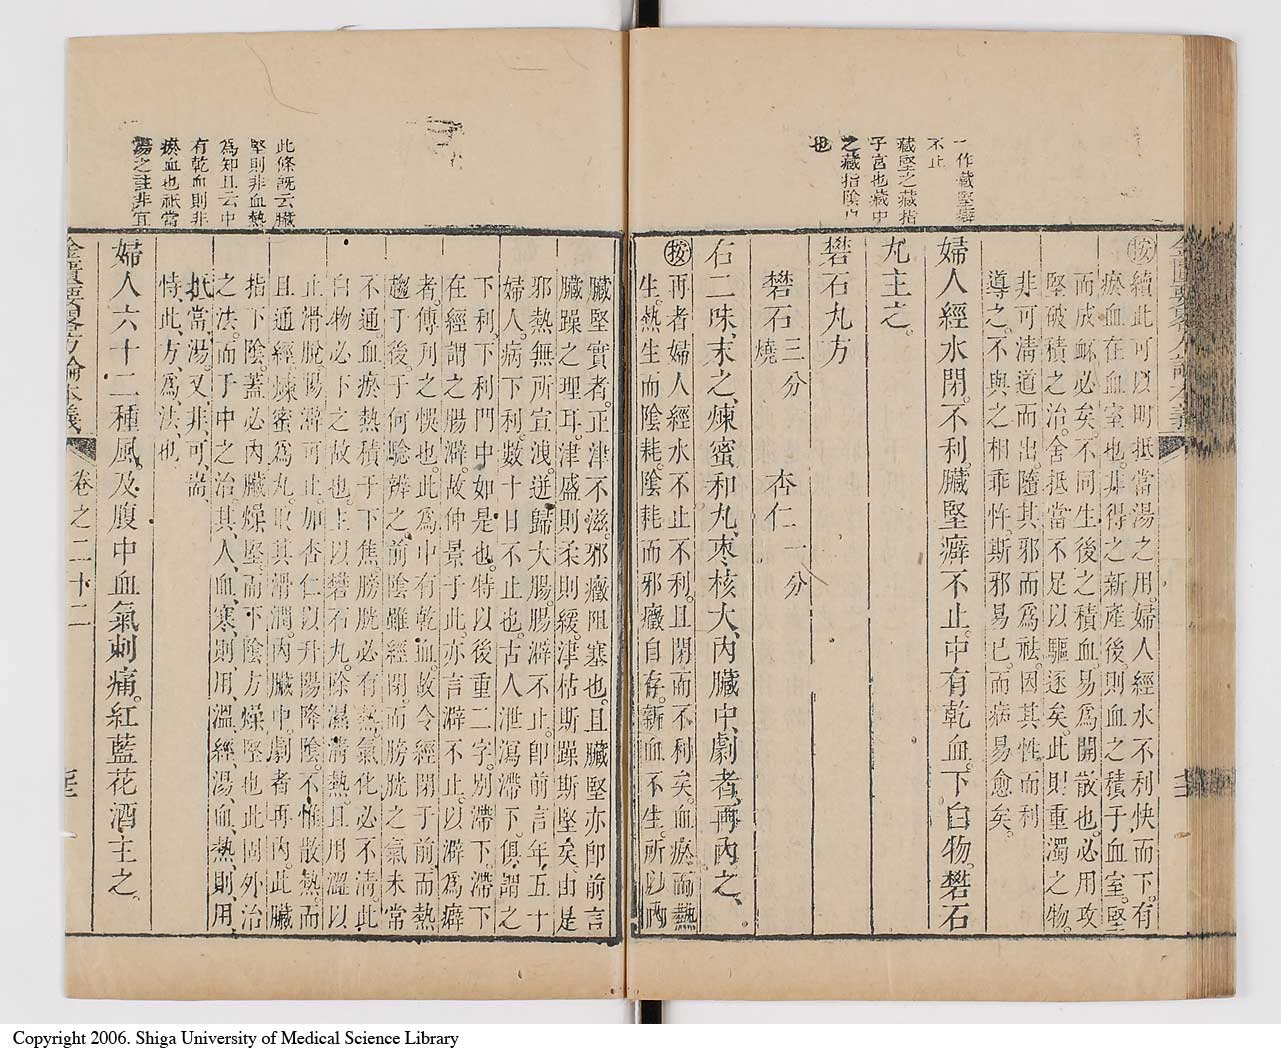 一作藏堅癖
不止
藏堅之藏指
子宮也藏中
之藏指陰内
也
按續此可以明抵當湯之用。婦人經水不利快而下。有
瘀血在血室也。非得之新產後。則血之積于血室。堅
而成衃必矣。不同生後之積血。易爲開散也。必用攻
堅破積之治。舍抵當不足以驅逐矣。此則重濁之物。
非可清道而出。隨其邪而爲祛。因其性而利
導之。不與之相乖忤。斯邪易已。而病易愈矣。
婦人經水閉。不利。臟堅癖不止。中有乾血。下白物。礬石
丸主之。
礬石丸方
礬石三分燒 杏仁一分
右二味、末之、煉蜜和丸、棗核大、内臟中、劇者、再内之、
按再者婦人經水不止不利。且閉而不利矣。血瘀而熱
生。熱生而陰耗。陰耗而邪癥自存。新血不生。所以兩
此條既云臟
堅則非血熱
為知且云中
有乾血則非
瘀血也祇當
湯之註非宜
臟堅實者。正津不滋。邪癥阻塞也。且臟堅亦即前言
臟躁之理耳。津盛則柔則緩。津枯斯躁斯堅矣。由是
邪熱無所宣洩。迸歸大腸。腸澼不止。即前言年五十
婦人。病下利。數十日不止也。古人泄瀉滯下。俱謂之
下利。下利門中如是也。特以後重二字。別滯下。滯下
在經謂之腸澼。故仲景于此。亦言澼不止。以澼爲癖
者。傳刋之悞也。此爲中有乾血。故令經閉于前而熱
趨于後。于何驗辨之。前陰雖經閉。而膀胱之氣未常
不通。血瘀熱積于下焦。膀胱必有熱。氣化必不清。此
白物必下之故也。主以礬石丸。除濕清熱。且用澀以
止滑脫。腸澼可止。加杏仁以升陽降陰。不惟散熱。而
且通經。煉蜜爲丸。取其滑潤。内臟中。劇者再内。此臟
指下陰。蓋必内臟燥堅。而下陰方燥堅也。此固外治
之法。而于中之治其人血寒、則用、溫、經、湯、血、熱、則、用、
抵、當、湯。又、非、可、耑、
恃、此、方、爲、法、也
婦人六十二種風。及腹中血氣刺痛。紅藍花酒主之。
金匱要畧方論本義 卷之二十二